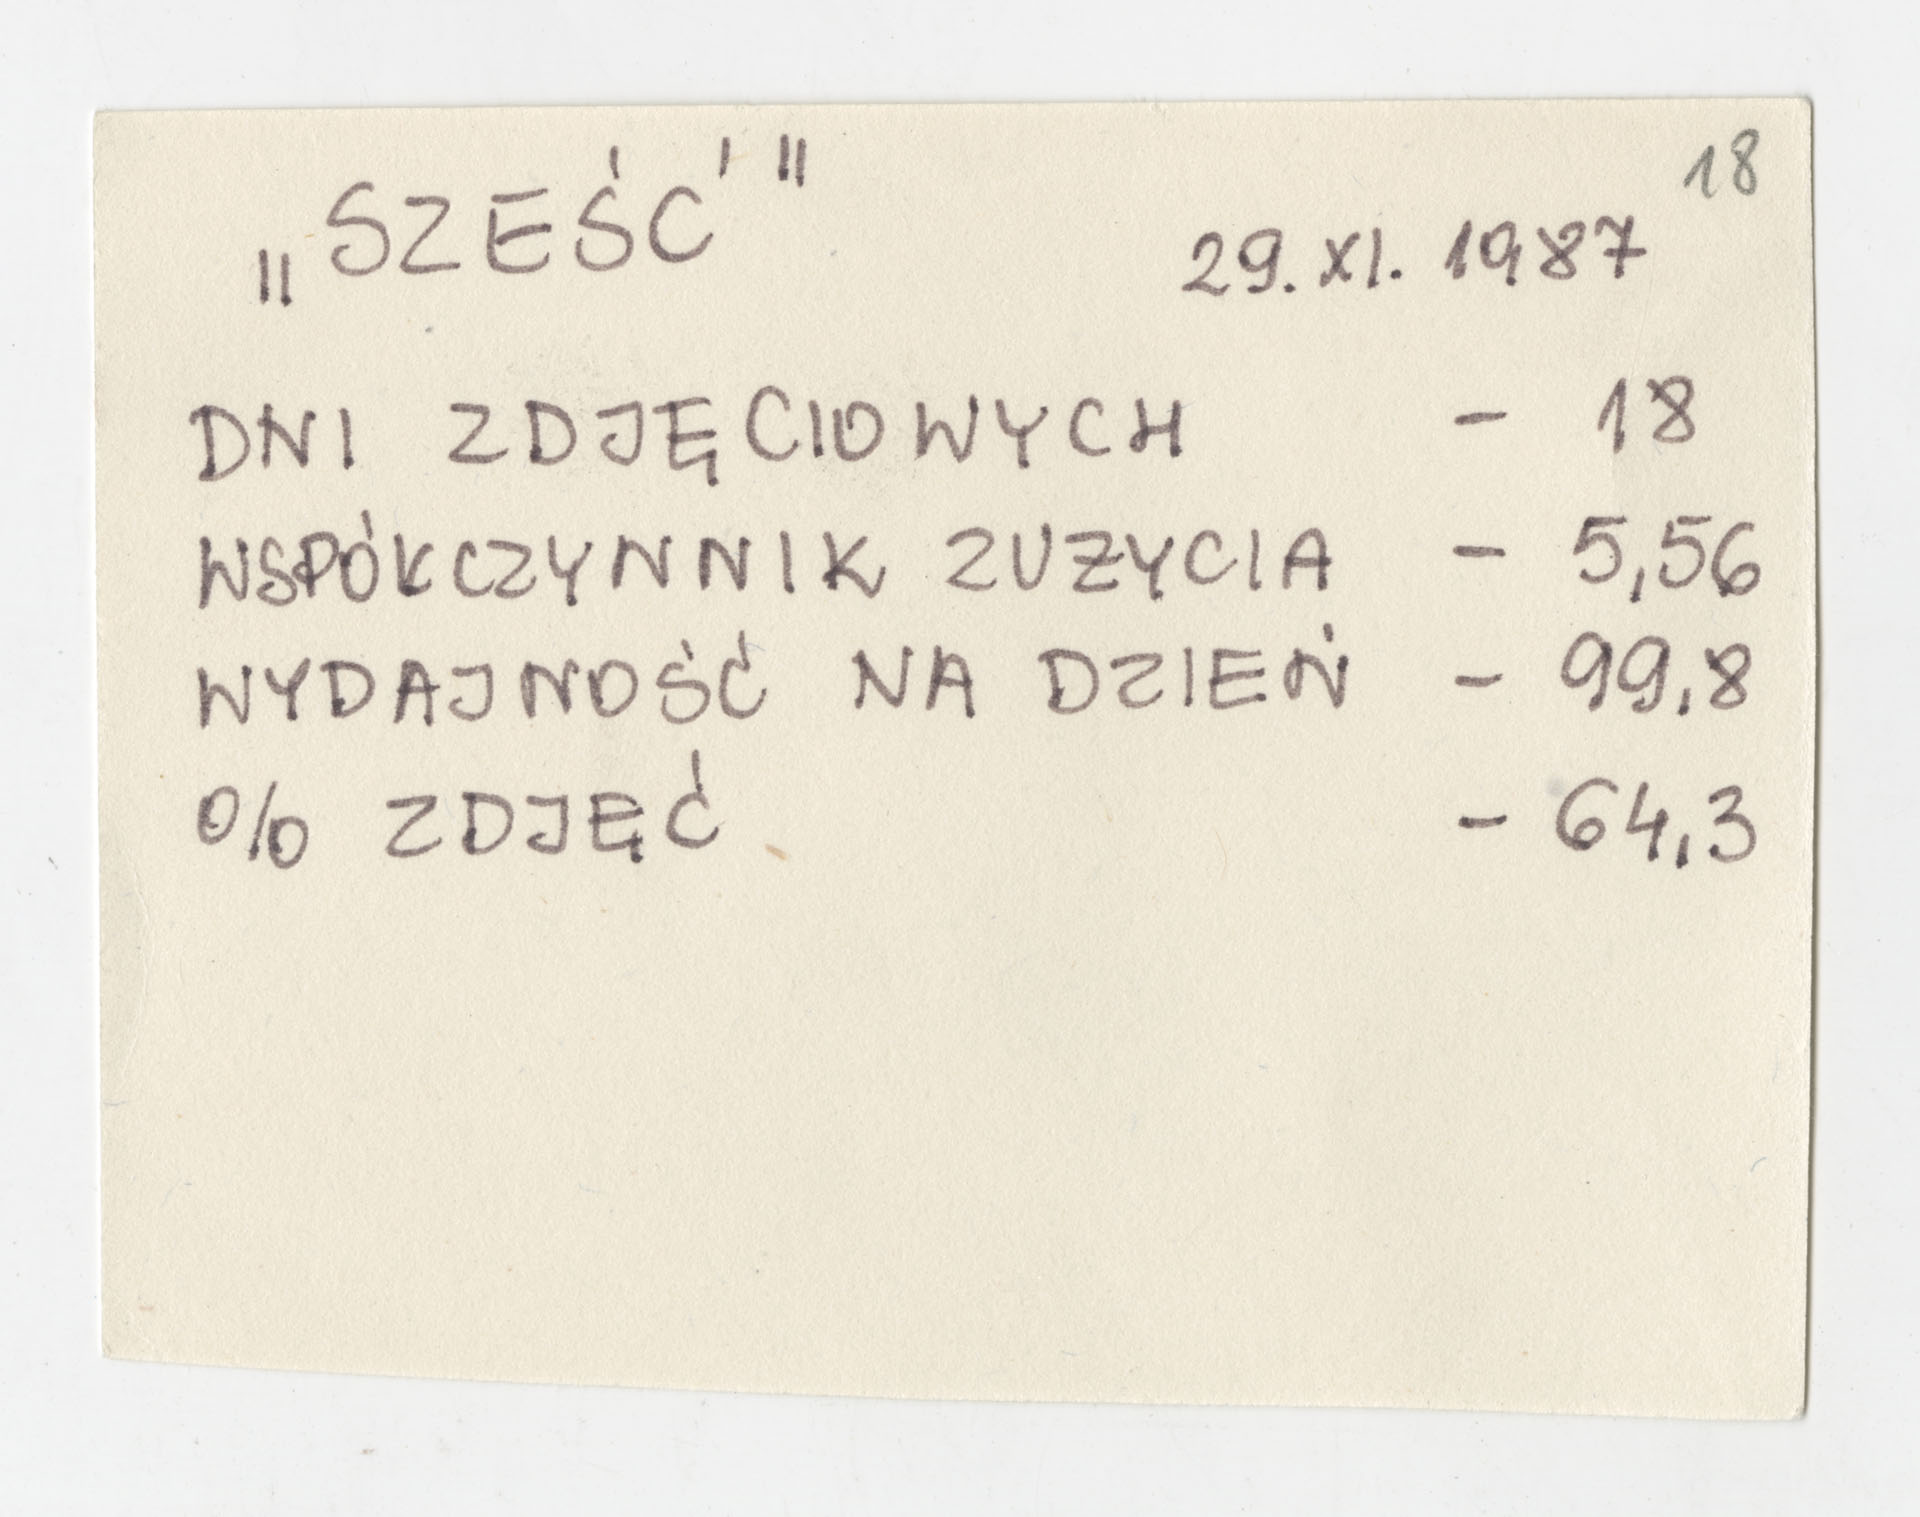 18
„SZEŚĆ" 29.XI.1987
DNI ZDJĘCIOWYCH - 18
WSPÓŁCZYNNIK ZUŻYCIA - 5,56
WYDAJNOŚĆ NA DZIEŃ - 99,8
% ZDJĘĆ - 64,3